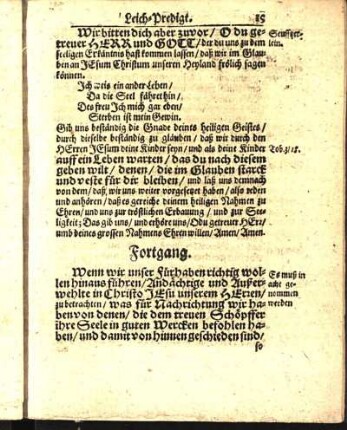 Leich-Predigt. 85
Wir bitten dich aber zuvor / O du ge-
treuer HERR und GOTT / der du uns zu dem
seeligen Erkäntnis hast kommen lassen / daß wir im Glau-
ben an JEsum Christum unseren Heyland frölich sagen
können.
Seufftzer-
lein.
Ich weis ein ander Leben /
Da die Seel fähret hin /
Des freu Ich mich gar eben /
Sterben ist mein Gewin.
Gib uns beständig die Gnade deines heiligen Geistes /
durch dieselbe beständig zu glauben / daß wir durch den
HErren JEsum deine Kinder seyn / und als deine Kinder
auff ein Leben warten / das du nach diesem
geben wilt / denen / die im Glauben starck
und veste für dir bleiben / und laß uns demnach
von dem / daß wir uns weiter vorgesetzet haben / also reden
und anhören / daß es gereiche deinem heiligen Nahmen zu
Ehren / und uns zur tröstlichen Erbauung / und zur See-
ligkeit; Das gib uns / und erhöre uns / O du getreuer HErr /
umb deines grossen Nahmens Ehren willen / Amen / Amen.
Tob. 2/18.
Fortgang.
Wenn wir unser fürhaben richtig wol-
len hinaus führen / Andächtige und Außer-
wehlte in Christo JEsu unserem HErren /
zubetrachten / was für Nachrichtung wir ha-
ben von denen / die dem treuen Schöpffer
ihre Seele in guten Wercken befohlen ha-
ben / und damit von hinnen geschieden sind /
Es muß in
acht ge-
nommen
werden
so